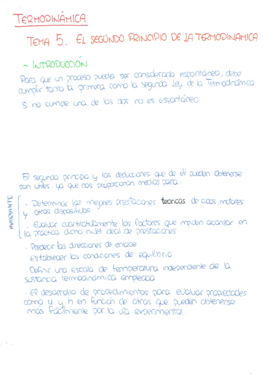 TERMODINÁMICA
TEMA 5. EL SEGUNDO PRINCIPIO DE LA TERMODINAMICA
~ INTRODUCCIÓN
Para que un proceso pueda ser considerado espontáneo, debe
cumplir tanto la primera como la segunda ley de la Termodinámica
Si no cumple una de las dos no es espontáneo
El segundo principio y las deducciones que de él pueden obtenerse
son útiles ya que nos proporcionan medios para:
IMPORTANTE
· Determinar las mejores prestaciones teóricas de ciclos, motores
y otros dispositivos
· Evaluar cuantitativamente los factores que impiden alcanzar en
la práctica dicho nivel ideal de prestaciones
· Predecir las direcciones de
Establecer las condiciones de equilibrio
Definir una escala de temperatura independiente de la
sustancia termodinámica empleada
El desarrollo de procedimientos para evaluar propiedades
como u y h en función de otras que pueden obtenerse
más fácilmente por la vía experimental